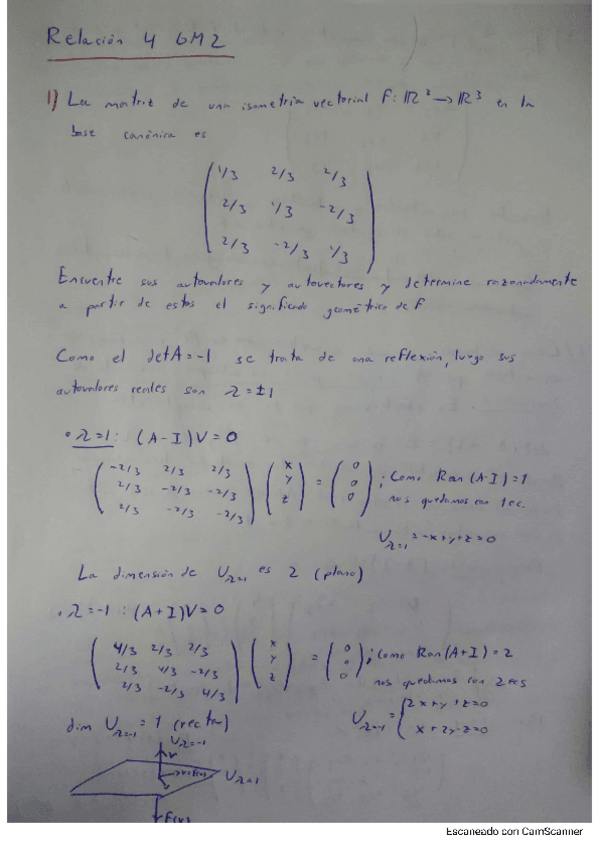 Relación 4 GM2
1) La matriz de una isometría vectorial f: ℝ³ → ℝ³ en la
base canónica es
1/3 2/3 2/3
2/3 1/3 -2/3
2/3 -2/3 1/3
Encuentre sus autovalores y autovectores y determine razonadamente
a partir de estos el significado geométrico de f
Como el det A = -1 se trata de una reflexión, luego sus
autovalores reales son λ = ±1
• λ=1: (A-I)V=0
( -2/3 2/3 2/3 ) ( x ) ( 0 )
( 2/3 -2/3 -2/3 ) ( y ) = ( 0 ) ; Como Ran (A-I)=1
( 2/3 -2/3 -2/3 ) ( z ) ( 0 ) nos quedamos con 1 ec.
U λ=1 = -x+y+z=0
La dimensión de U λ=1 es 2 (plano)
• λ=-1: (A+I)V=0
( 4/3 2/3 2/3 ) ( x ) ( 0 )
( 2/3 4/3 -2/3 ) ( y ) = ( 0 ) ; Como Ran (A+I)=2
( 2/3 -2/3 4/3 ) ( z ) ( 0 ) nos quedamos con 2 ecs
dim U λ=-1 = 1 (recta)
U λ=-1 = { 2x+y+z=0
x+2y-z=0
U λ=-1
v
U λ=1
f(v)
Escaneado con CamScanner